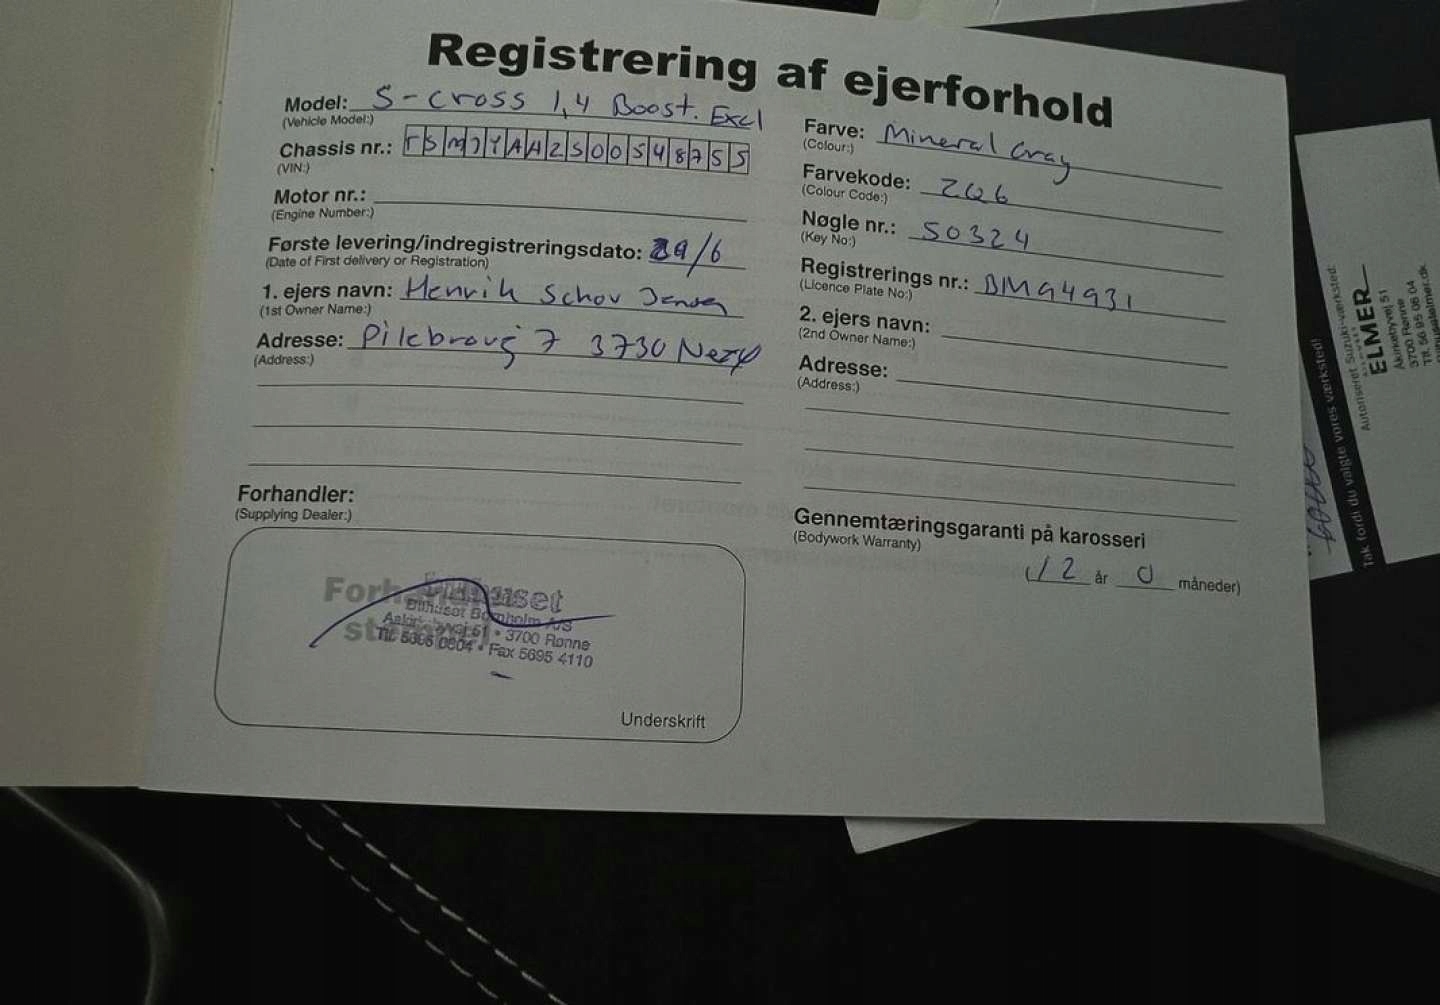 Registrering af ejerforhold
Model: S-cross 1,4 Boost. Excl
(Vehicle Model:)
Chassis nr.: TSMJYAA2S00548755
(VIN:)
Motor nr.:
(Engine Number:)
Første levering/indregistreringsdato: 29/6
(Date of First delivery or Registration)
1. ejers navn: Henrik Schou Jensen
(1st Owner Name:)
Adresse: 7 3730 Nexø
(Address:)
Forhandler:
(Supplying Dealer:)
Bilhuset Bornholm A/S
51 • 3700 Rønne
Tlf. 5695 0604 • Fax 5695 4110
Underskrift
Farve: Mineral Gray
(Colour:)
Farvekode: ZQ6
(Colour Code:)
Nøgle nr.: S0324
(Key No:)
Registrerings nr.: BM94931
(Licence Plate No:)
2. ejers navn:
(2nd Owner Name:)
Adresse:
(Address:)
Gennemtæringsgaranti på karosseri
(Bodywork Warranty)
(12 år 0 måneder)
Tak fordi du valgte vores værksted!
Autoriseret Suzuki-værksted:
ELMER
Aakirkebyvej 51
3700 Rønne
Tlf. 56 95 06 04